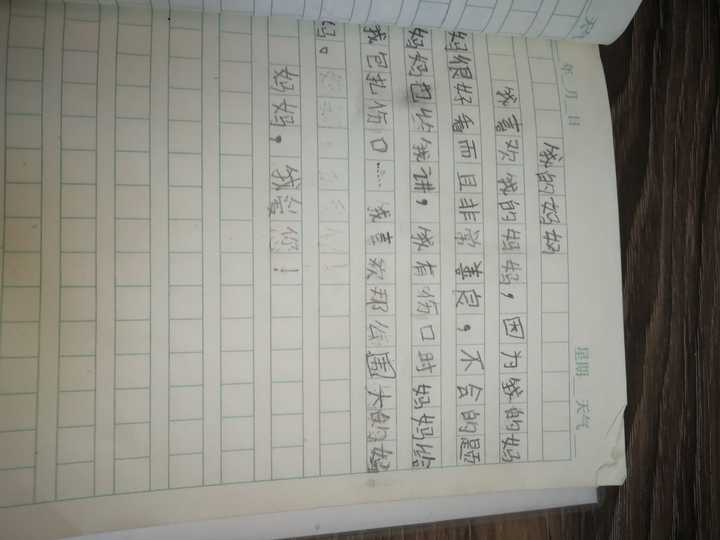 年 月 日 星期 天气
我的妈妈
我喜欢我的妈妈，因为我的妈
妈很好看而且非常善良，不会的题
妈妈也给我讲，我有伤口时妈妈给
我包扎伤口……我喜欢那么围大的妈
妈。
妈妈，我爱你！